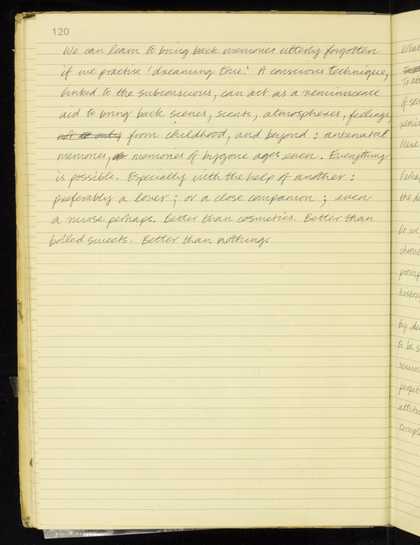 120
We can learn to bring back memories utterly forgotten
if we practise 'dreaming true.' A conscious technique,
linked to the subconscious, can act as a reminiscence
aid to bring back scenes, scents, atmospheres, feelings,
from childhood, and beyond : antenatal
memories, memories of bygone ages even. Everything
is possible. Especially with the help of another :
preferably a lover ; or a close companion ; even
a nurse perhaps. Better than cosmetics. Better than
boiled sweets. Better than nothing.